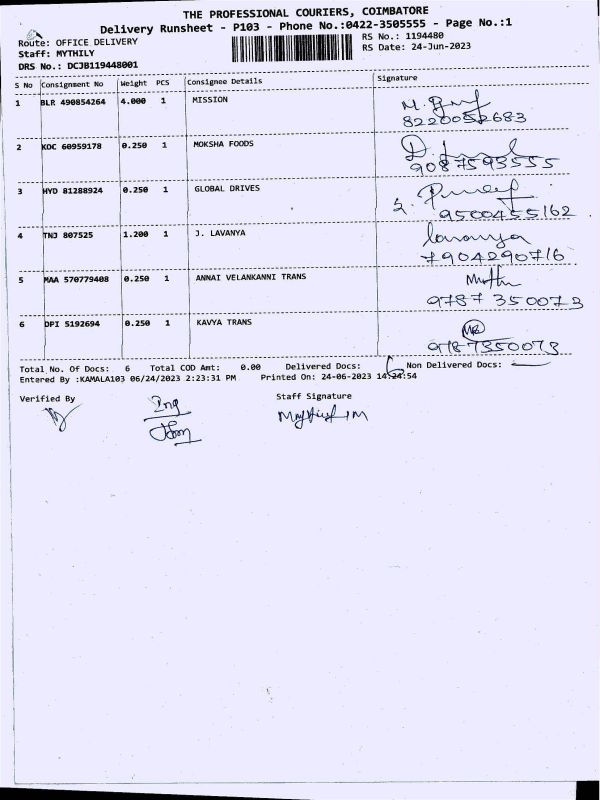 THE PROFESSIONAL COURIERS, COIMBATORE
Delivery Runsheet - P103 - Phone No.:0422-3505555 - Page No.:1
Route: OFFICE DELIVERY
RS No.: 1194480
Staff: MYTHILY
RS Date: 24-Jun-2023
DRS No.: DCJB119448001
S No Consignment No Weight PCS Consignee Details Signature
1 BLR 490854264 4.000 1 MISSION
8220052683
2 KOC 60959178 0.250 1 MOKSHA FOODS
9087593555
3 HYD 81288924 0.250 1 GLOBAL DRIVES
9500455162
4 TNJ 807525 1.200 1 J. LAVANYA Lavanya
7904290716
5 MAA 570779408 0.250 1 ANNAI VELANKANNI TRANS Muthu
9787 350073
6 DPI 5192694 0.250 1 KAVYA TRANS
9787350073
Total No. Of Docs: 6 Total COD Amt: 0.00 Delivered Docs: 6 Non Delivered Docs: —
Entered By :KAMALA103 06/24/2023 2:23:31 PM Printed On: 24-06-2023 14:24:54
Verified By Staff Signature